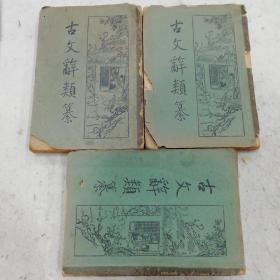 古文辭類纂
古文辭類纂
古文辭類纂